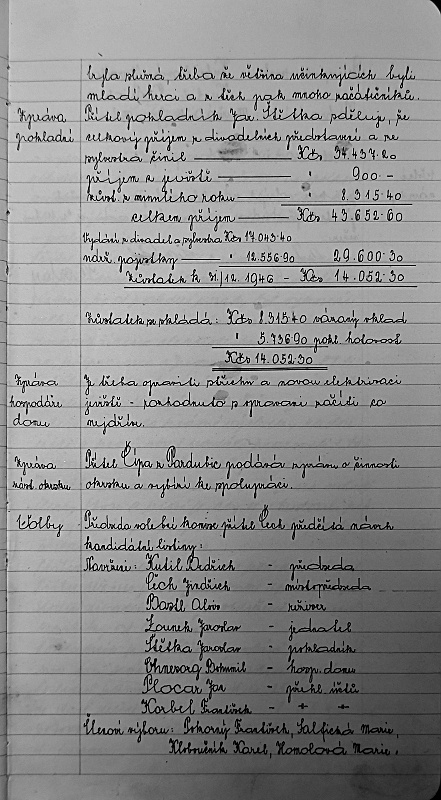 byla slušná, třeba že většina účinkujících byli
mladí herci a z těch pak mnoho začátečníků.
Zpráva pokladní
Přítel pokladník Jar. Štětka sděluje, že
celkový příjem z divadelních představení a ze
sylvestra činil — Kčs 34.437.20
příjem z jeviště — " 900.-
zůst. z minulého roku — " 8.315.40
celkem příjem — Kčs 43.652.60
Vydání z divadel a sylvestra Kčs 17.043.40
udrž. pojistky — " 12.556.90 29.600.30
Zůstatek k 31./12. 1946 - Kčs 14.052.30
Zůstatek se skládá: Kčs 8.315.40 vázaný vklad
" 5.736.90 pokl. hotovost
Kčs 14.052.30
Zpráva hospodáře domu
Je třeba opraviti střechu a novou elektrisaci
jeviště - rozhodnuto s opravami začíti co
nejdříve.
Zpráva zást. okrsku
Přítel Čípa z Pardubic podává zprávu o činnosti
okrsku a vybízí ke spolupráci.
Volby
Předseda volební komise přítel Čech předčítá návrh
kandidátní listiny:
Navrženi: Kutil Bedřich - předseda
Čech Jindřich - místopředseda
Bastl Alois - režisér
Zounek Jaroslav - jednatel
Štětka Jaroslav - pokladník
Ohnesorg Bohumil - hosp. domu
Plocar Jan - přehl. účtů
Korbel František - " - "
Členové výboru: Pokorný František, Salfická Marie,
Kloboučník Karel, Homolová Marie.